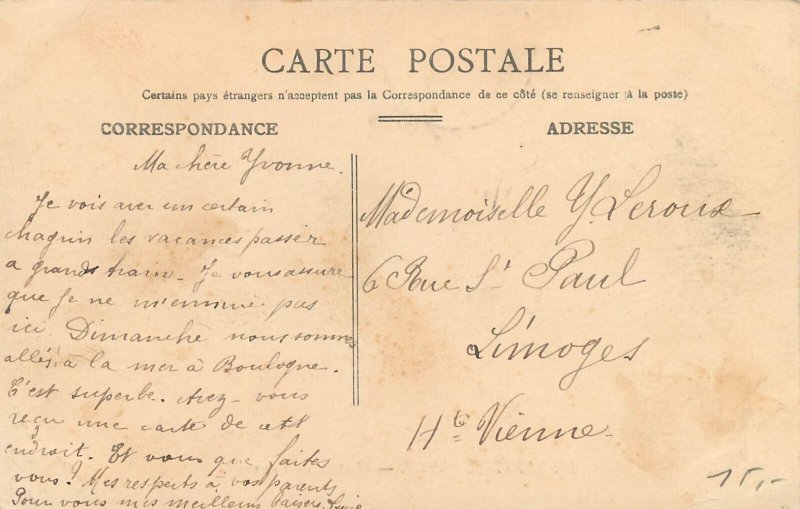 CARTE POSTALE
Certains pays étrangers n'acceptent pas la Correspondance de ce côté (se renseigner à la poste)
CORRESPONDANCE
Ma chère Yvonne.
Je vois avec un certain
chagrin les vacances passer
a grands train. Je vous assure
que je ne m'ennuie pas
ici. Dimanche nous sommes
allés à la mer à Boulogne.
C'est superbe. Avez-vous
reçu une carte de cet
endroit. Et vous que faites
vous? Mes respects à vos parents
Pour vous mes meilleurs baisers.
ADRESSE
Mademoiselle Y. Leroux
6 Rue St Paul
Limoges
Hte Vienne.
15,-